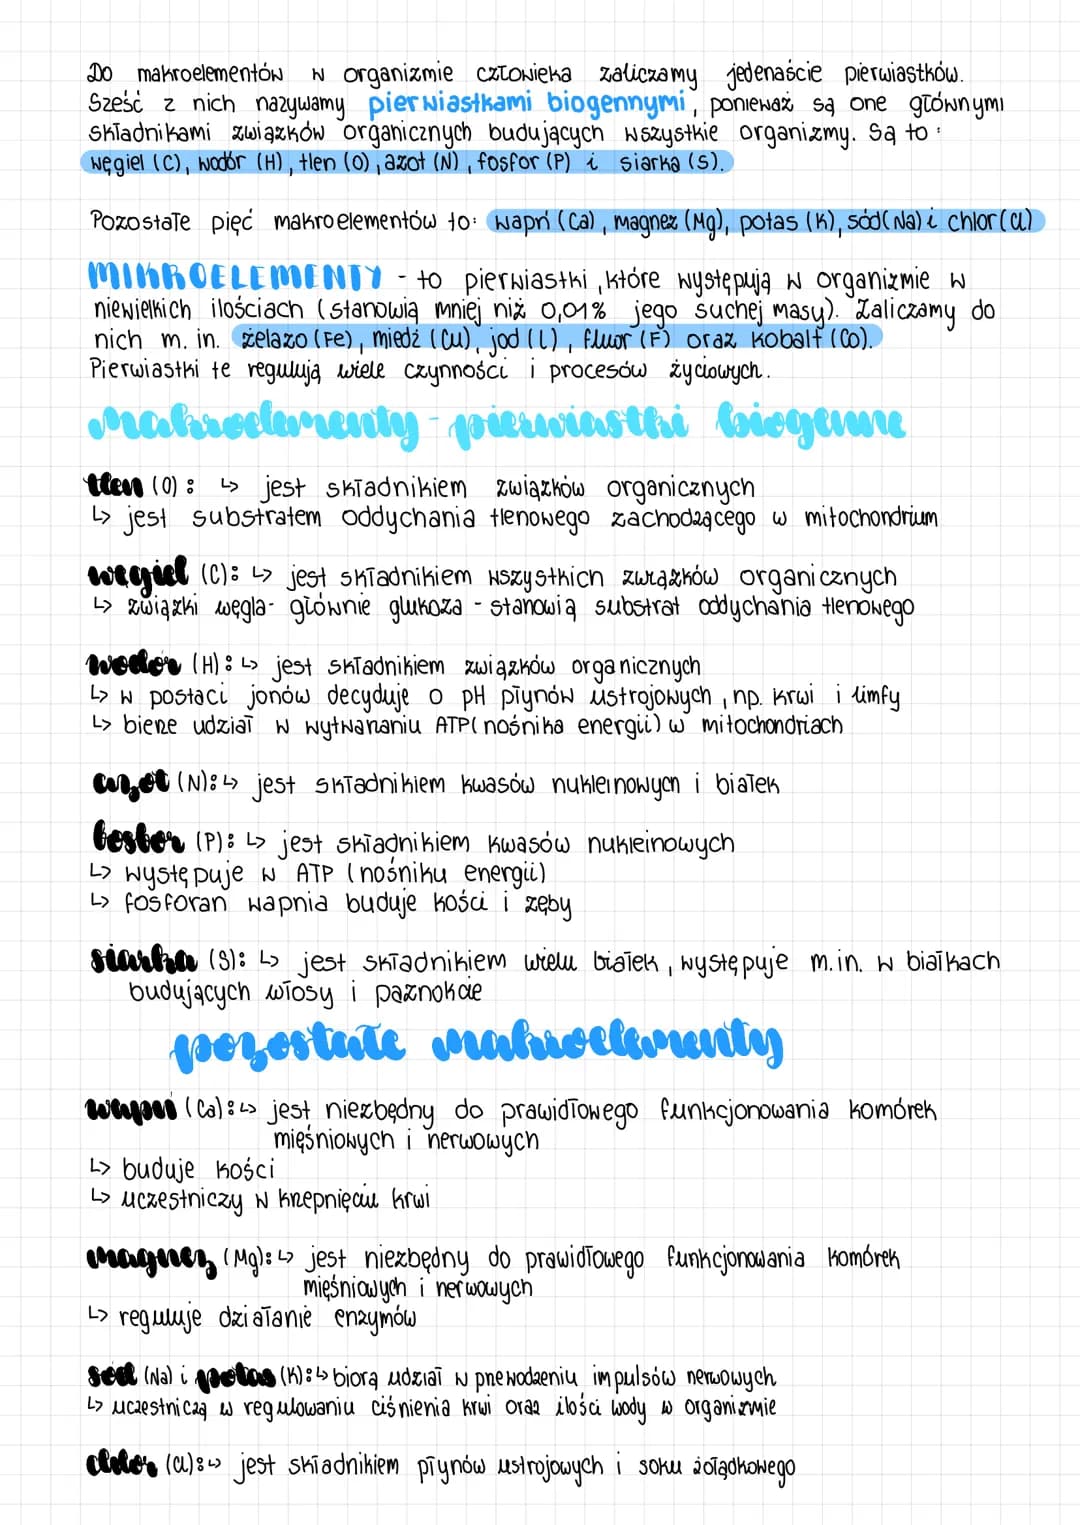 Do makroelementów w organizmie człowieka zaliczamy jedenaście pierwiastków.
Sześć z nich nazywamy pierwiastkami biogennymi, ponieważ są one głównymi
składnikami związków organicznych budujących wszystkie organizmy. Są to:
węgiel (C), wodór (H), tlen (O), azot (N), fosfor (P) i siarka (S).
Pozostałe pięć makroelementów to: wapń (Ca), magnez (Mg), potas (K), sód (Na) i chlor (Cl)
MIKROELEMENTY - to pierwiastki, które występują w organizmie w
niewielkich ilościach (stanowią mniej niż 0,01% jego suchej masy). Zaliczamy do
nich m. in. żelazo (Fe), miedź (Cu), jod (I), fluor (F) oraz kobalt (Co).
Pierwiastki te regulują wiele czynności i procesów życiowych.
makroelementy - pierwiastki biogenne
tlen (O): ↳ jest składnikiem związków organicznych
↳ jest substratem oddychania tlenowego zachodzącego w mitochondrium
węgiel (C): ↳ jest składnikiem wszystkich związków organicznych
↳ związki węgla - głównie glukoza - stanowią substrat oddychania tlenowego
wodór (H): ↳ jest składnikiem związków organicznych
↳ w postaci jonów decyduje o pH płynów ustrojowych, np. krwi i limfy
↳ bierze udział w wytwarzaniu ATP (nośnika energii) w mitochondriach
azot (N): ↳ jest składnikiem kwasów nukleinowych i białek
fosfor (P): ↳ jest składnikiem kwasów nukleinowych
↳ występuje w ATP (nośniku energii)
↳ fosforan wapnia buduje kości i zęby
siarka (S): ↳ jest składnikiem wielu białek, występuje m.in. w białkach
budujących włosy i paznokcie
pozostałe makroelementy
wapń (Ca): ↳ jest niezbędny do prawidłowego funkcjonowania komórek
mięśniowych i nerwowych
↳ buduje kości
↳ uczestniczy w krzepnięciu krwi
magnez (Mg): ↳ jest niezbędny do prawidłowego funkcjonowania komórek
mięśniowych i nerwowych
↳ reguluje działanie enzymów
sód (Na) i potas (K): ↳ biorą udział w przewodzeniu impulsów nerwowych
↳ uczestniczą w regulowaniu ciśnienia krwi oraz ilości wody w organizmie
chlor (Cl): ↳ jest składnikiem płynów ustrojowych i soku żołądkowego